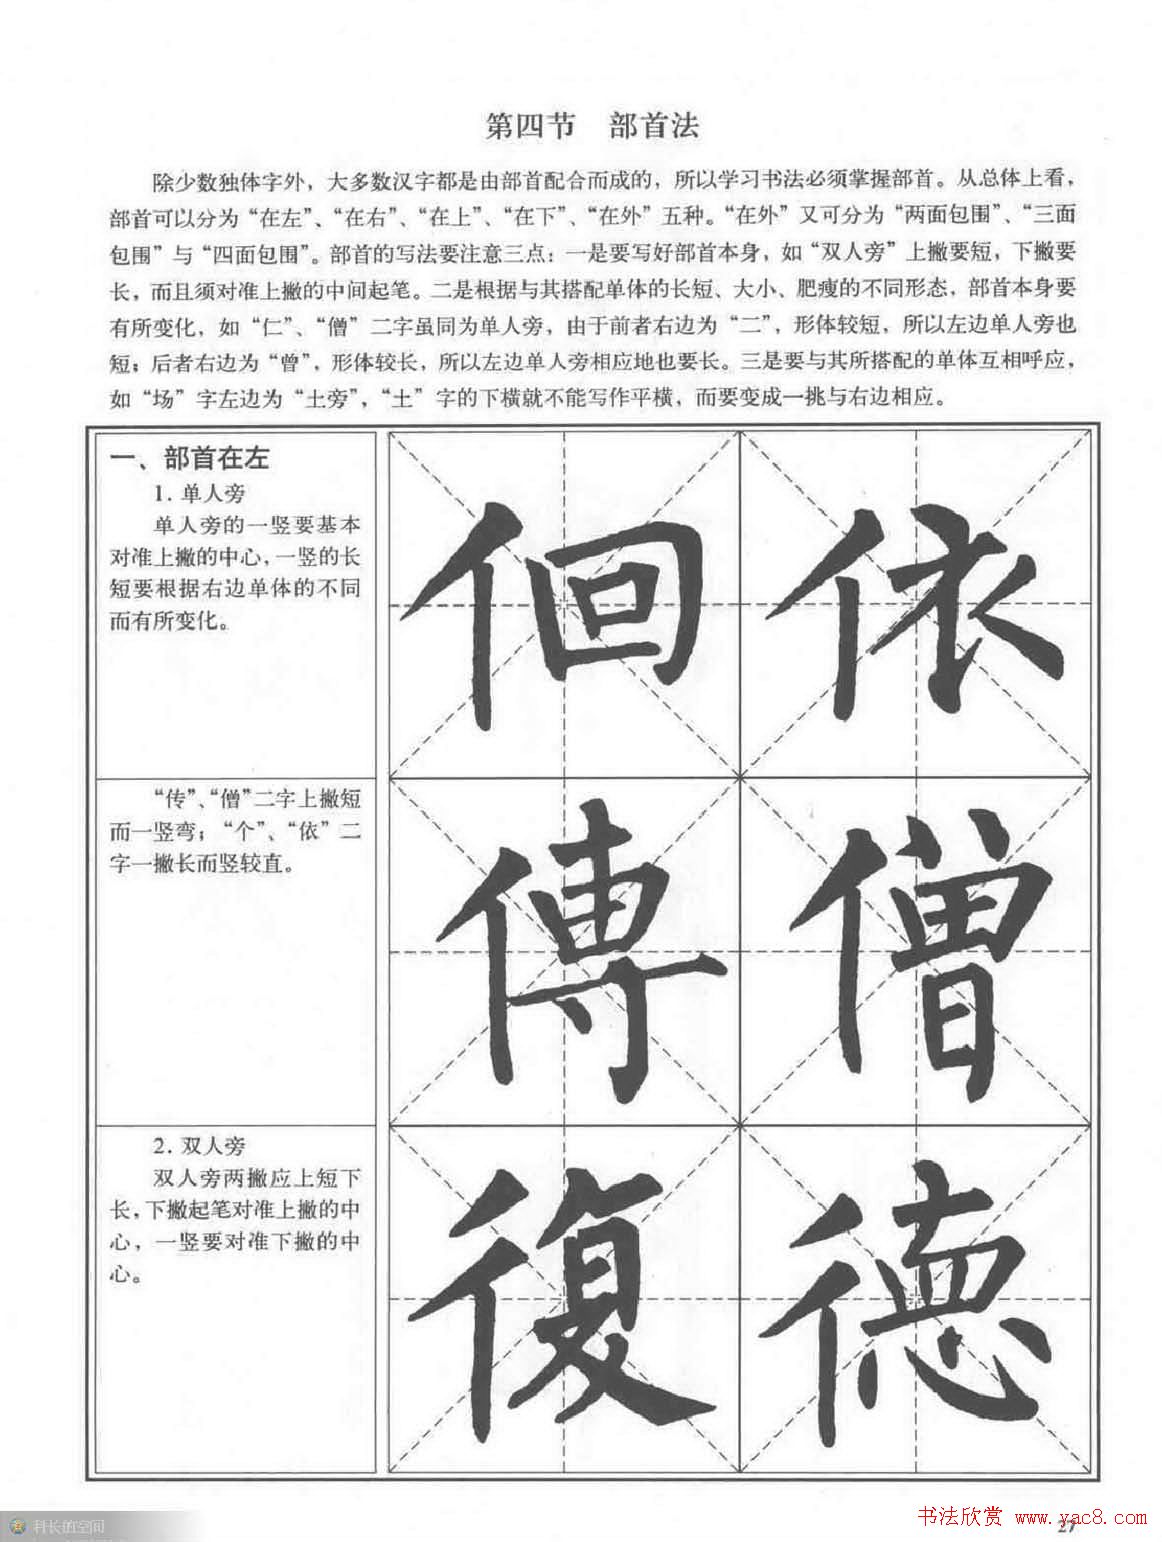 第四节 部首法
除少数独体字外，大多数汉字都是由部首配合而成的，所以学习书法必须掌握部首。从总体上看，
部首可以分为“在左”、“在右”、“在上”、“在下”、“在外”五种。“在外”又可分为“两面包围”、“三面
包围”与“四面包围”。部首的写法要注意三点：一是要写好部首本身，如“双人旁”上撇要短，下撇要
长，而且须对准上撇的中间起笔。二是根据与其搭配单体的长短、大小、肥瘦的不同形态，部首本身要
有所变化，如“仁”、“僧”二字虽同为单人旁，由于前者右边为“二”，形体较短，所以左边单人旁也
短；后者右边为“曾”，形体较长，所以左边单人旁相应地也要长。三是要与其所搭配的单体互相呼应，
如“场”字左边为“土旁”，“土”字的下横就不能写作平横，而要变成一挑与右边相应。
一、部首在左
1. 单人旁
单人旁的一竖要基本
对准上撇的中心，一竖的长
短要根据右边单体的不同
而有所变化。
佪 依
“传”、“僧”二字上撇短
而一竖弯；“个”、“依”二
字一撇长而竖较直。
傳 僧
2. 双人旁
双人旁两撇应上短下
长，下撇起笔对准上撇的中
心，一竖要对准下撇的中
心。
復 德
科长的空间
书法欣赏 www.yac8.com
27